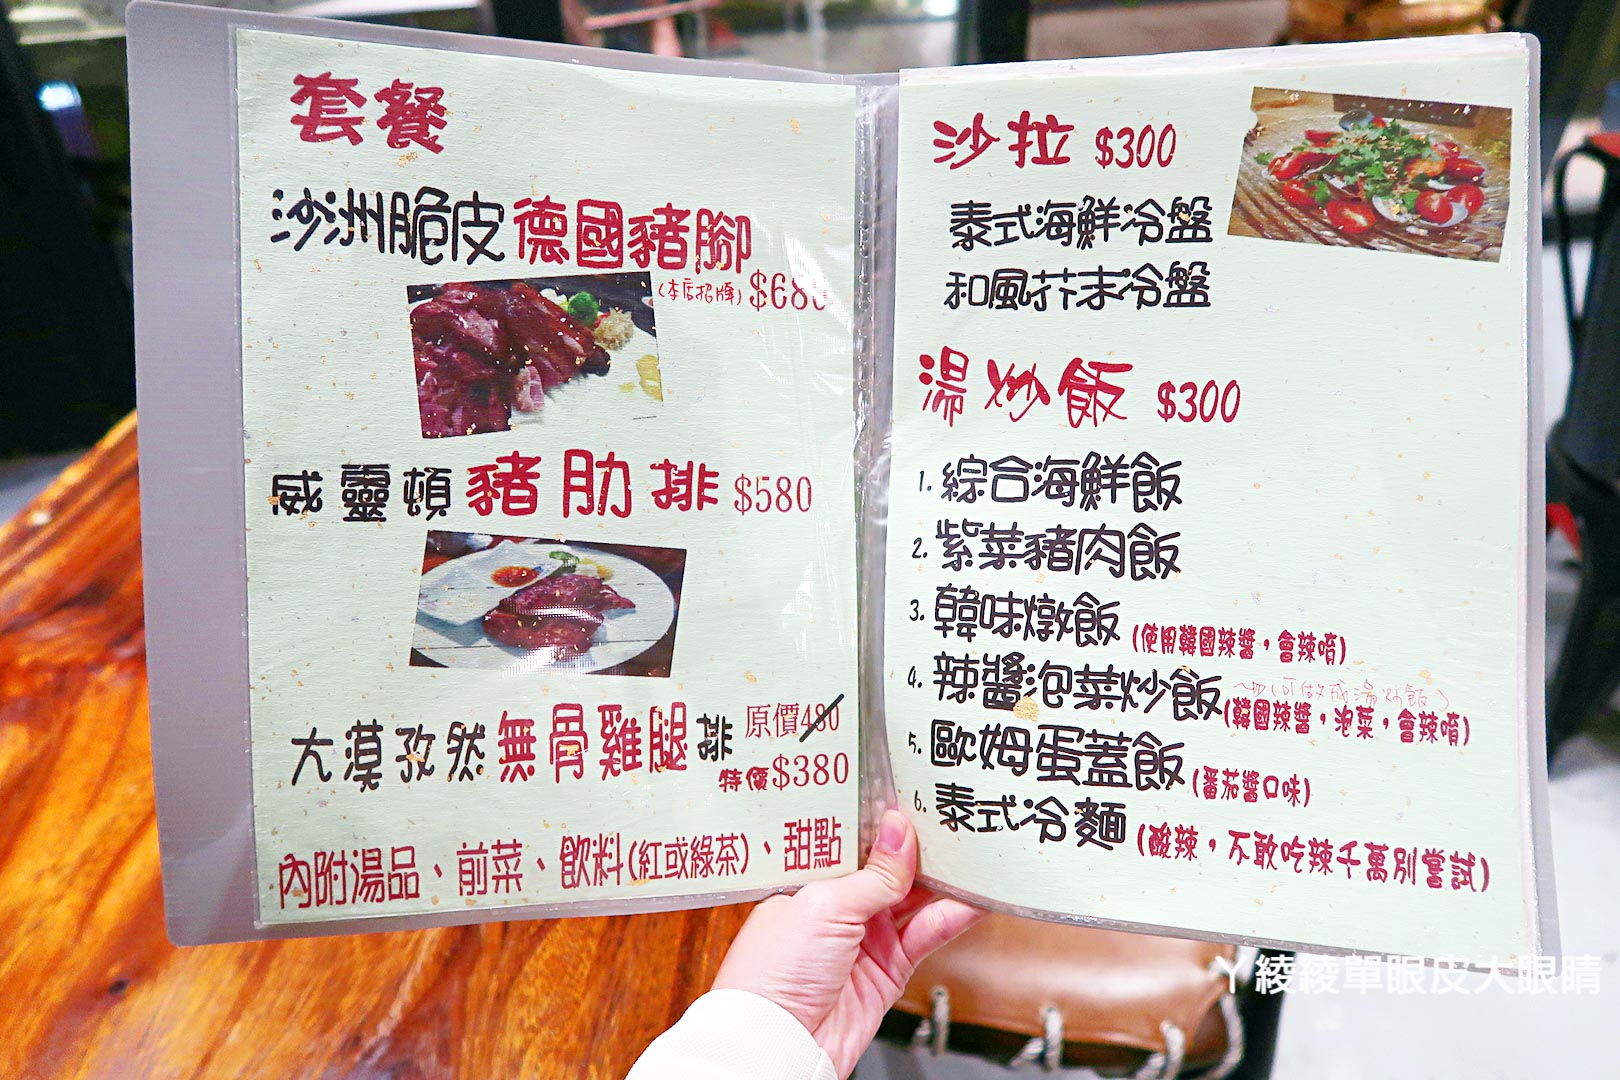 套餐
沙洲脆皮德國豬腳
(本店招牌) $680
威靈頓豬肋排 $580
大漠孜然無骨雞腿排 原價480
特價$380
內附湯品、前菜、飲料(紅或綠茶)、甜點
沙拉 $300
泰式海鮮冷盤
和風芥末冷盤
湯炒飯 $300
1. 綜合海鮮飯
2. 紫菜豬肉飯
3. 韓味燉飯 (使用韓國辣醬，會辣唷)
4. 辣醬泡菜炒飯 (可做成湯炒飯)
(韓國辣醬，泡菜，會辣唷)
5. 歐姆蛋蓋飯 (番茄醬口味)
6. 泰式冷麵 (酸辣，不敢吃辣千萬別嘗試)
ㄚ綾綾單眼皮大眼睛